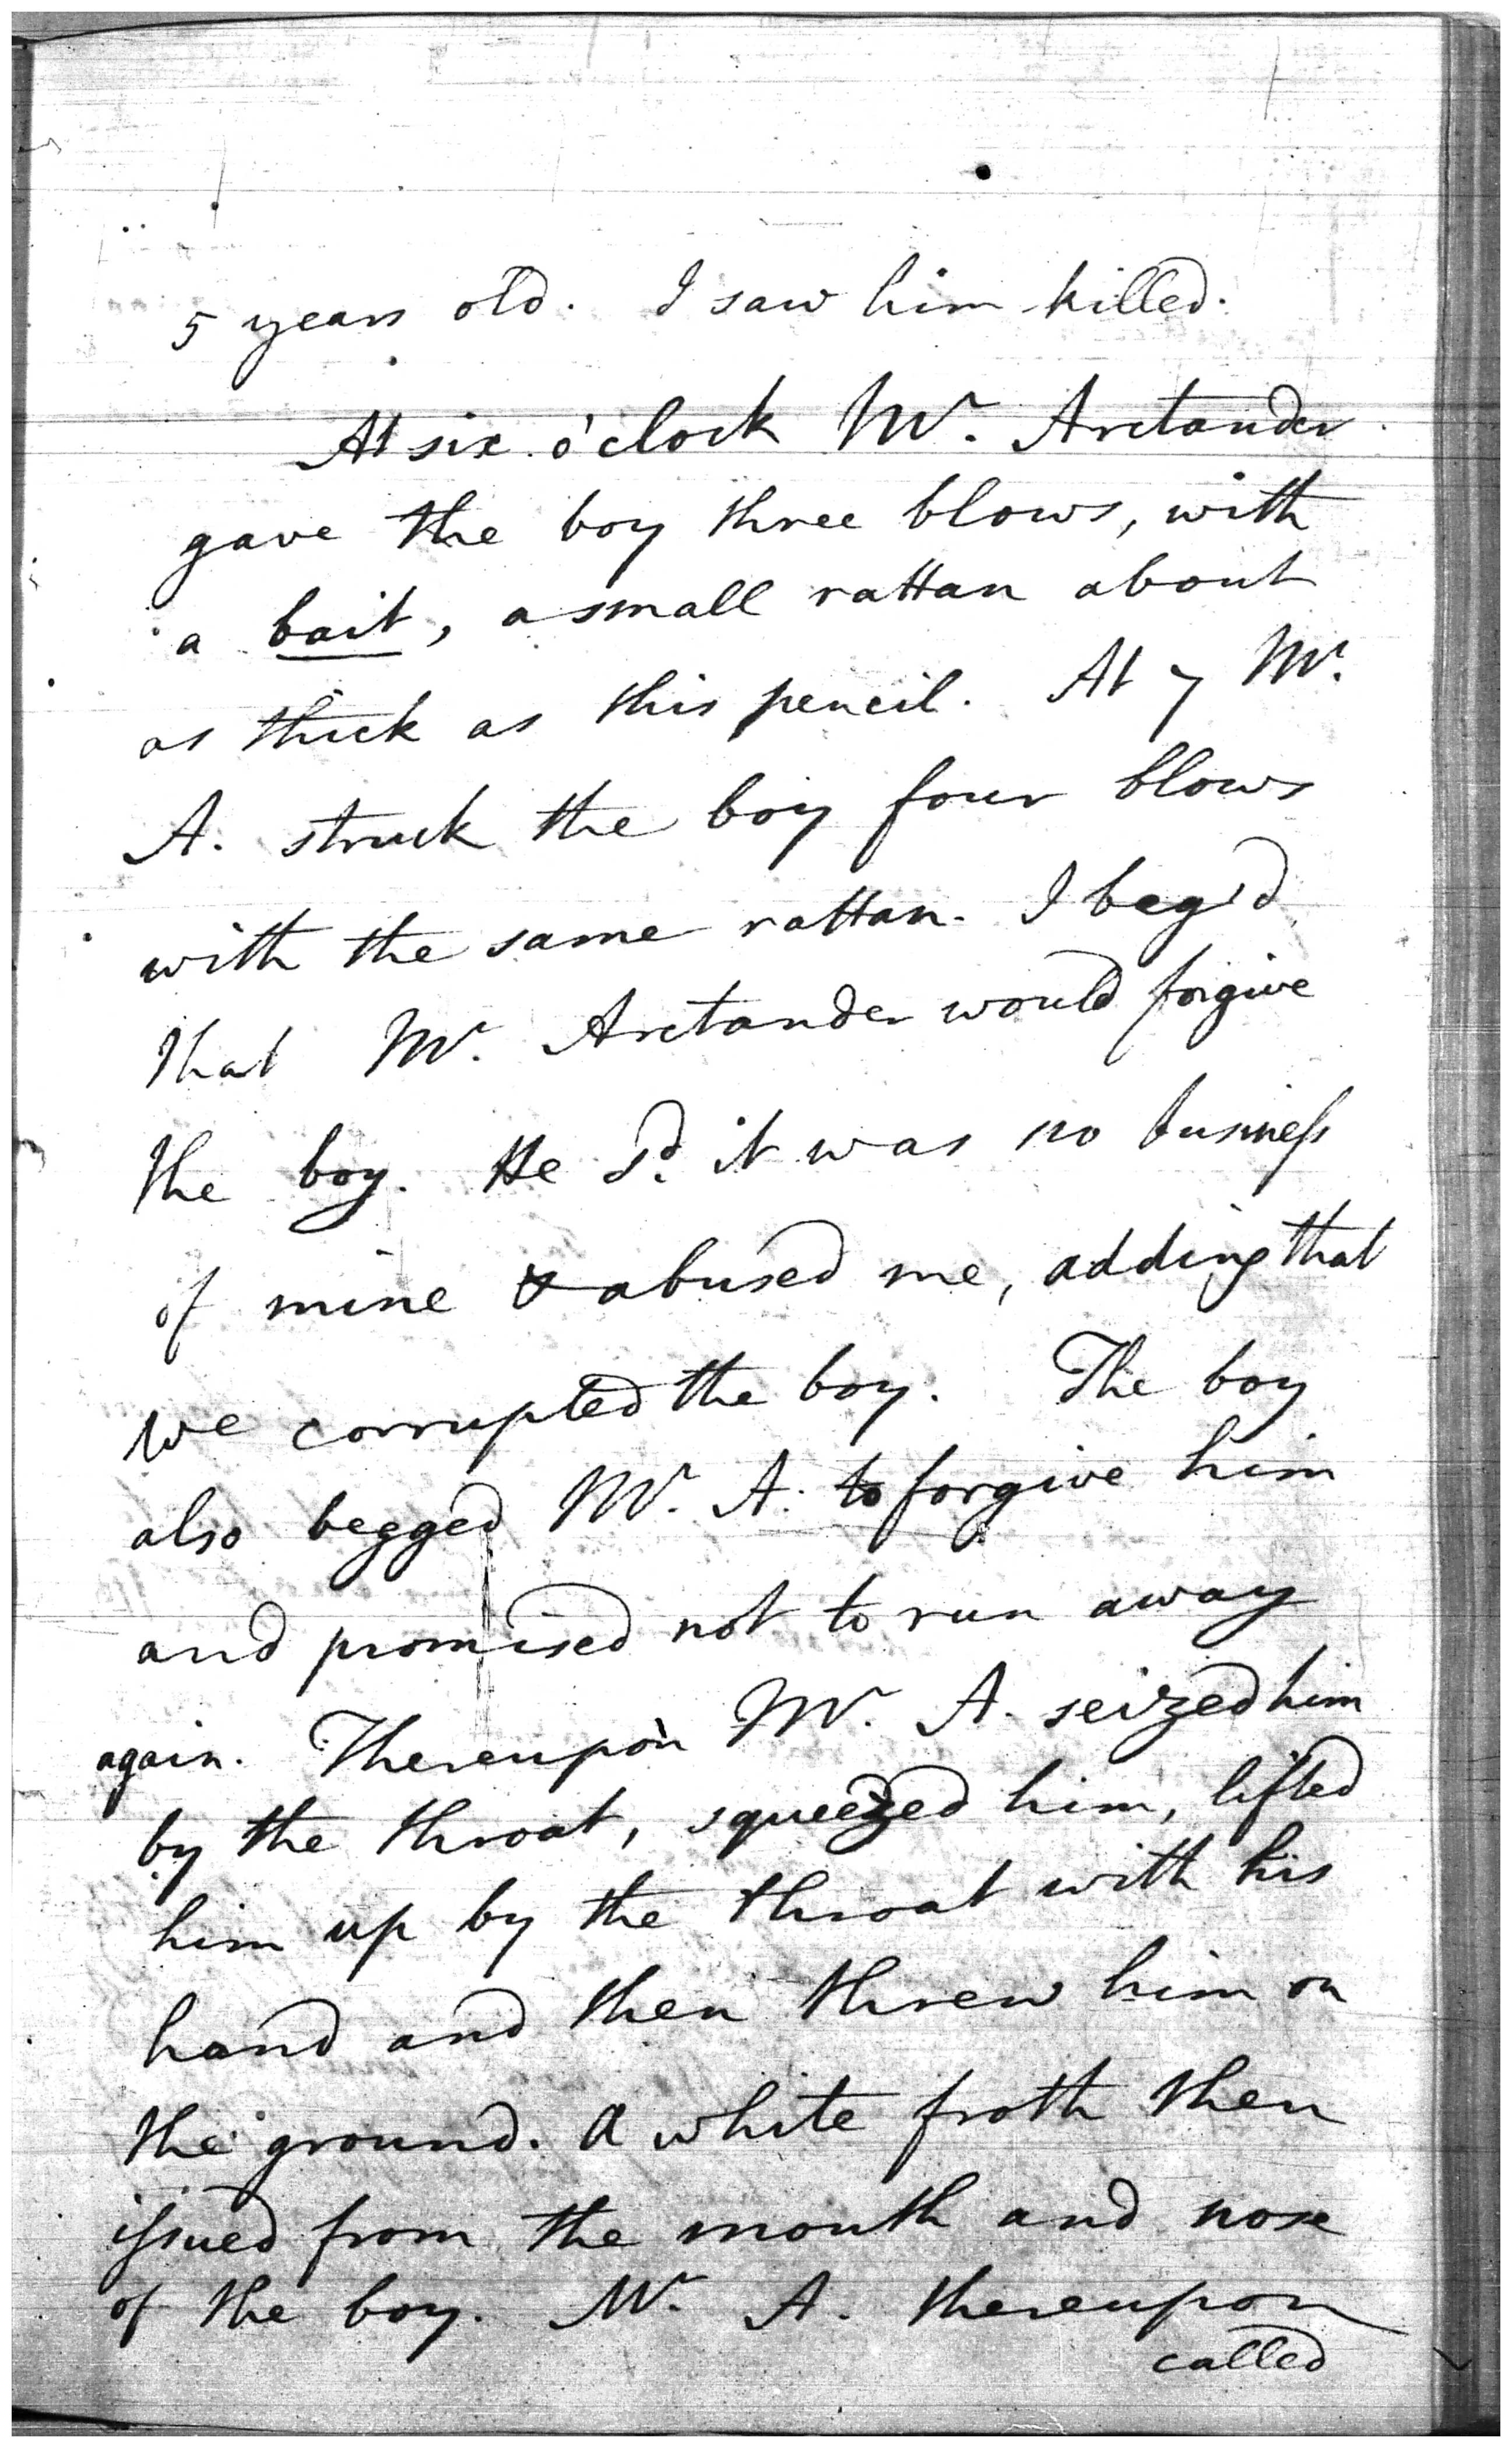 5 years old. I saw him killed.
At six o'clock Mr. Arctander
gave the boy three blows, with
a bait, a small rattan about
as thick as this pencil. At 7 Mr.
A. struck the boy four blows
with the same rattan. I beg'd
that Mr. Arctander would forgive
the boy. He sd. it was no business
of mine & abused me, adding that
we corrupted the boy. The boy
also begged Mr. A. to forgive him
and promised not to run away
again. Thereupon Mr. A. seized him
by the throat, squeezed him, lifted
him up by the throat with his
hand and then threw him on
the ground. A white froth then
issued from the mouth and nose
of the boy. Mr. A. thereupon
called